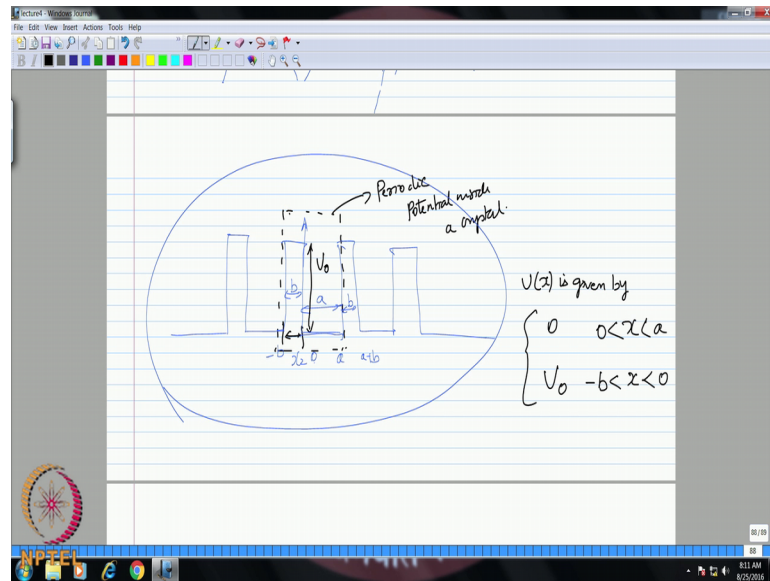 lecture4 - Windows Journal
File Edit View Insert Actions Tools Help
Periodic
Potential inside
a crystal.
V₀
b
a
b
-b
0
a
a+b
U(x) is given by
0 0<x<a
V₀ -b<x<0
NPTEL
88/89
88
8:11 AM
8/25/2016